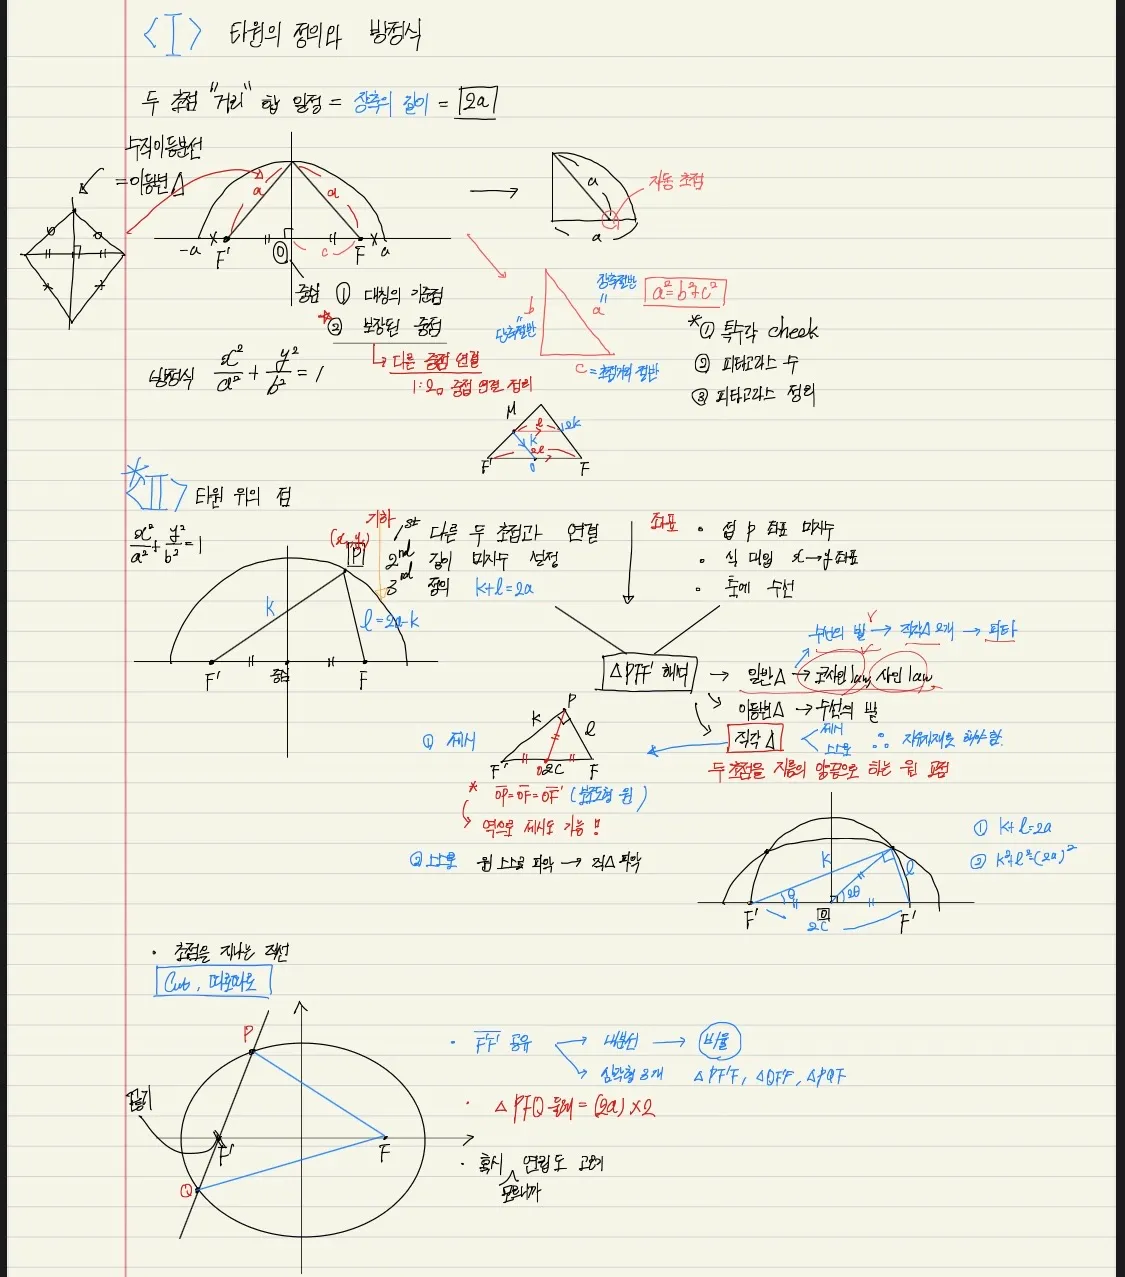 <I> 타원의 정의와 방정식
두 초점 "거리" 합 일정 = 장축의 길이 = 2a
수직이등분선
= 이등변△
a a
-a F' O c F a
a
a
자동 초점
중심 ① 대칭의 기준점
② 보장된 중점
↳ 다른 중점 연결
1:2, 중점 연결 정리
방정식 x²/a² + y²/b² = 1
b 단축절반
장축절반 a
a²=b²+c²
c = 초점거리 절반
* ① 특수각 check
② 피타고라스 수
③ 피타고라스 정의
M l k 2k
2l
F' O F
* <II> 타원 위의 점
x²/a² + y²/b² = 1
(x, y)
P
k
l = 2a-k
F' 중심 F
기하
1st 다른 두 초점과 연결
2nd 길이 미지수 설정
3rd 정의 k+l=2a
좌표
• 점 P 좌표 미지수
• 식 대입 x→y좌표
• 축에 수선
△PFF' 해석
수선의 발 → 직각△ 2개 → 피타
→ 일반△ → 코사인 law, 사인 law
이등변△ → 수선의 발
직각△ < 제시
스스로
∴ 자유자재로 해야 함.
두 초점을 지름의 양끝으로 하는 원 교점
① 제시
P
k l
F' O 2c F
* OP=OF=OF'
역으로 제시도 가능!!
② 스스로 원 스스로 파악 → 직△ 파악
k l
θ 2θ
F' O F'
2c
① k+l=2a
② k²+l²=(2a)²
• 초점을 지나는 직선
Cut, 따로따로
P
F' F
Q
• FF' 공유 → 내분선 → 비율
↘ 삼각형 3개 △PF'F, △QFF', △PQF
• △PFQ 둘레 = (2a)×2
• 혹시 연립도 고려
모르니까